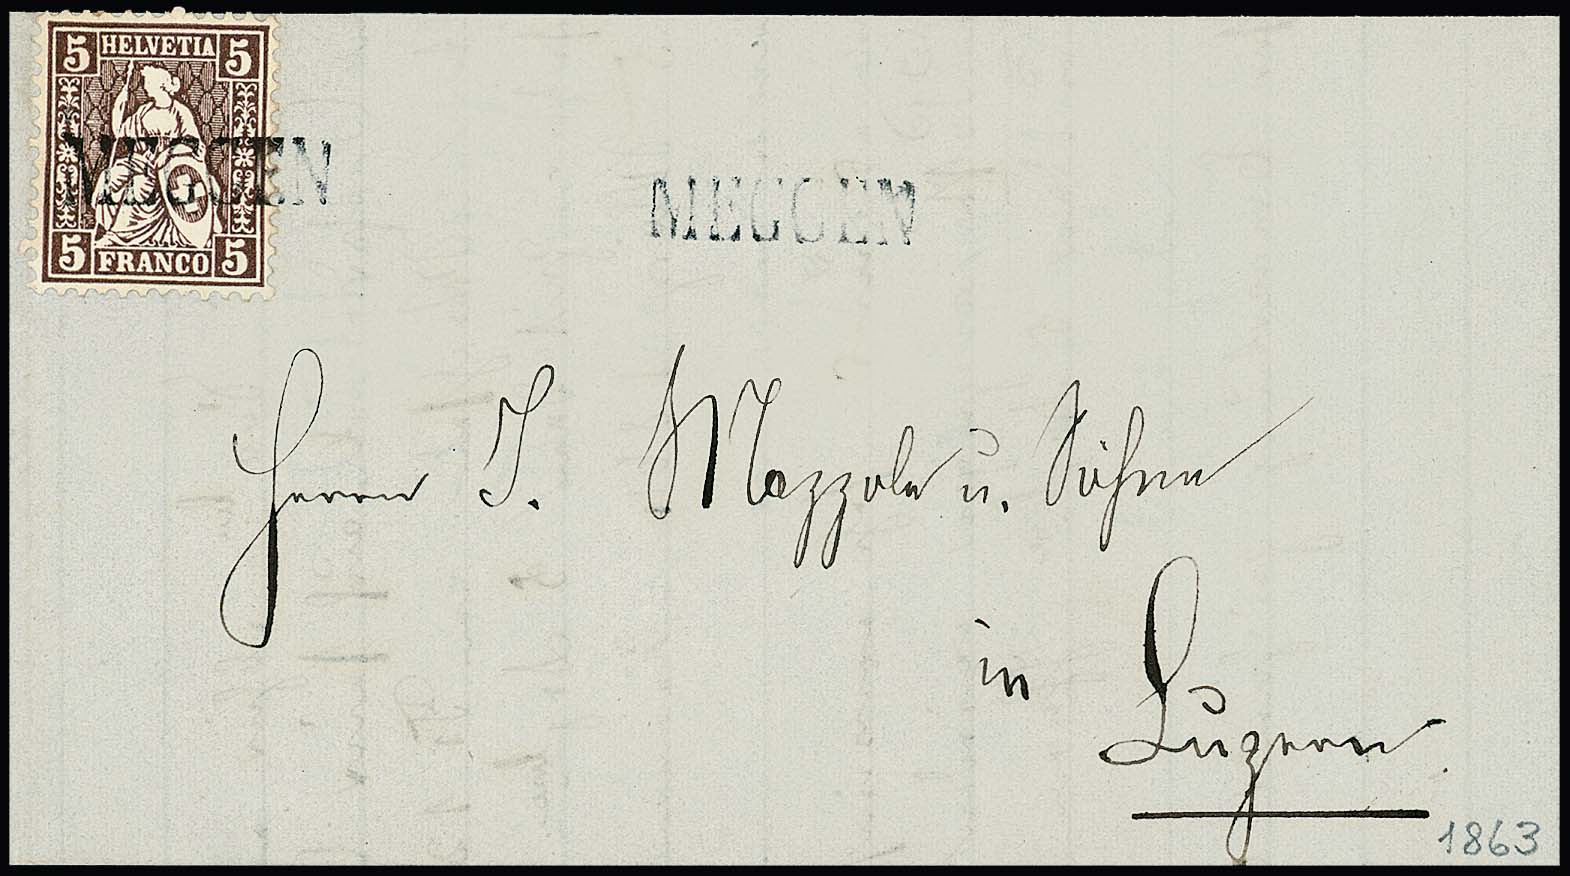 5 HELVETIA 5
5 FRANCO 5
MEGGEN
MEGGEN
Herrn J. Mazzola u. Söhne
in
Luzern
1863